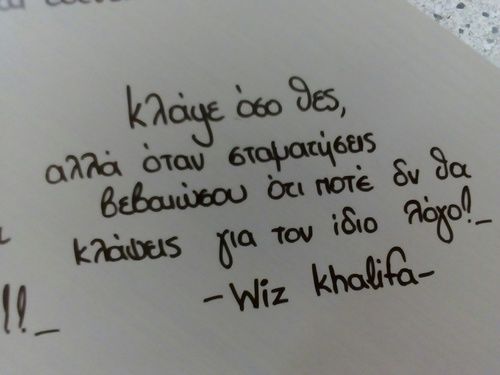 κλάψε όσο θες,
αλλά όταν σταματήσεις
βεβαιώσου ότι ποτέ δν θα
κλάψεις για τον ίδιο λόγο!_
-Wiz khalifa-
!!_